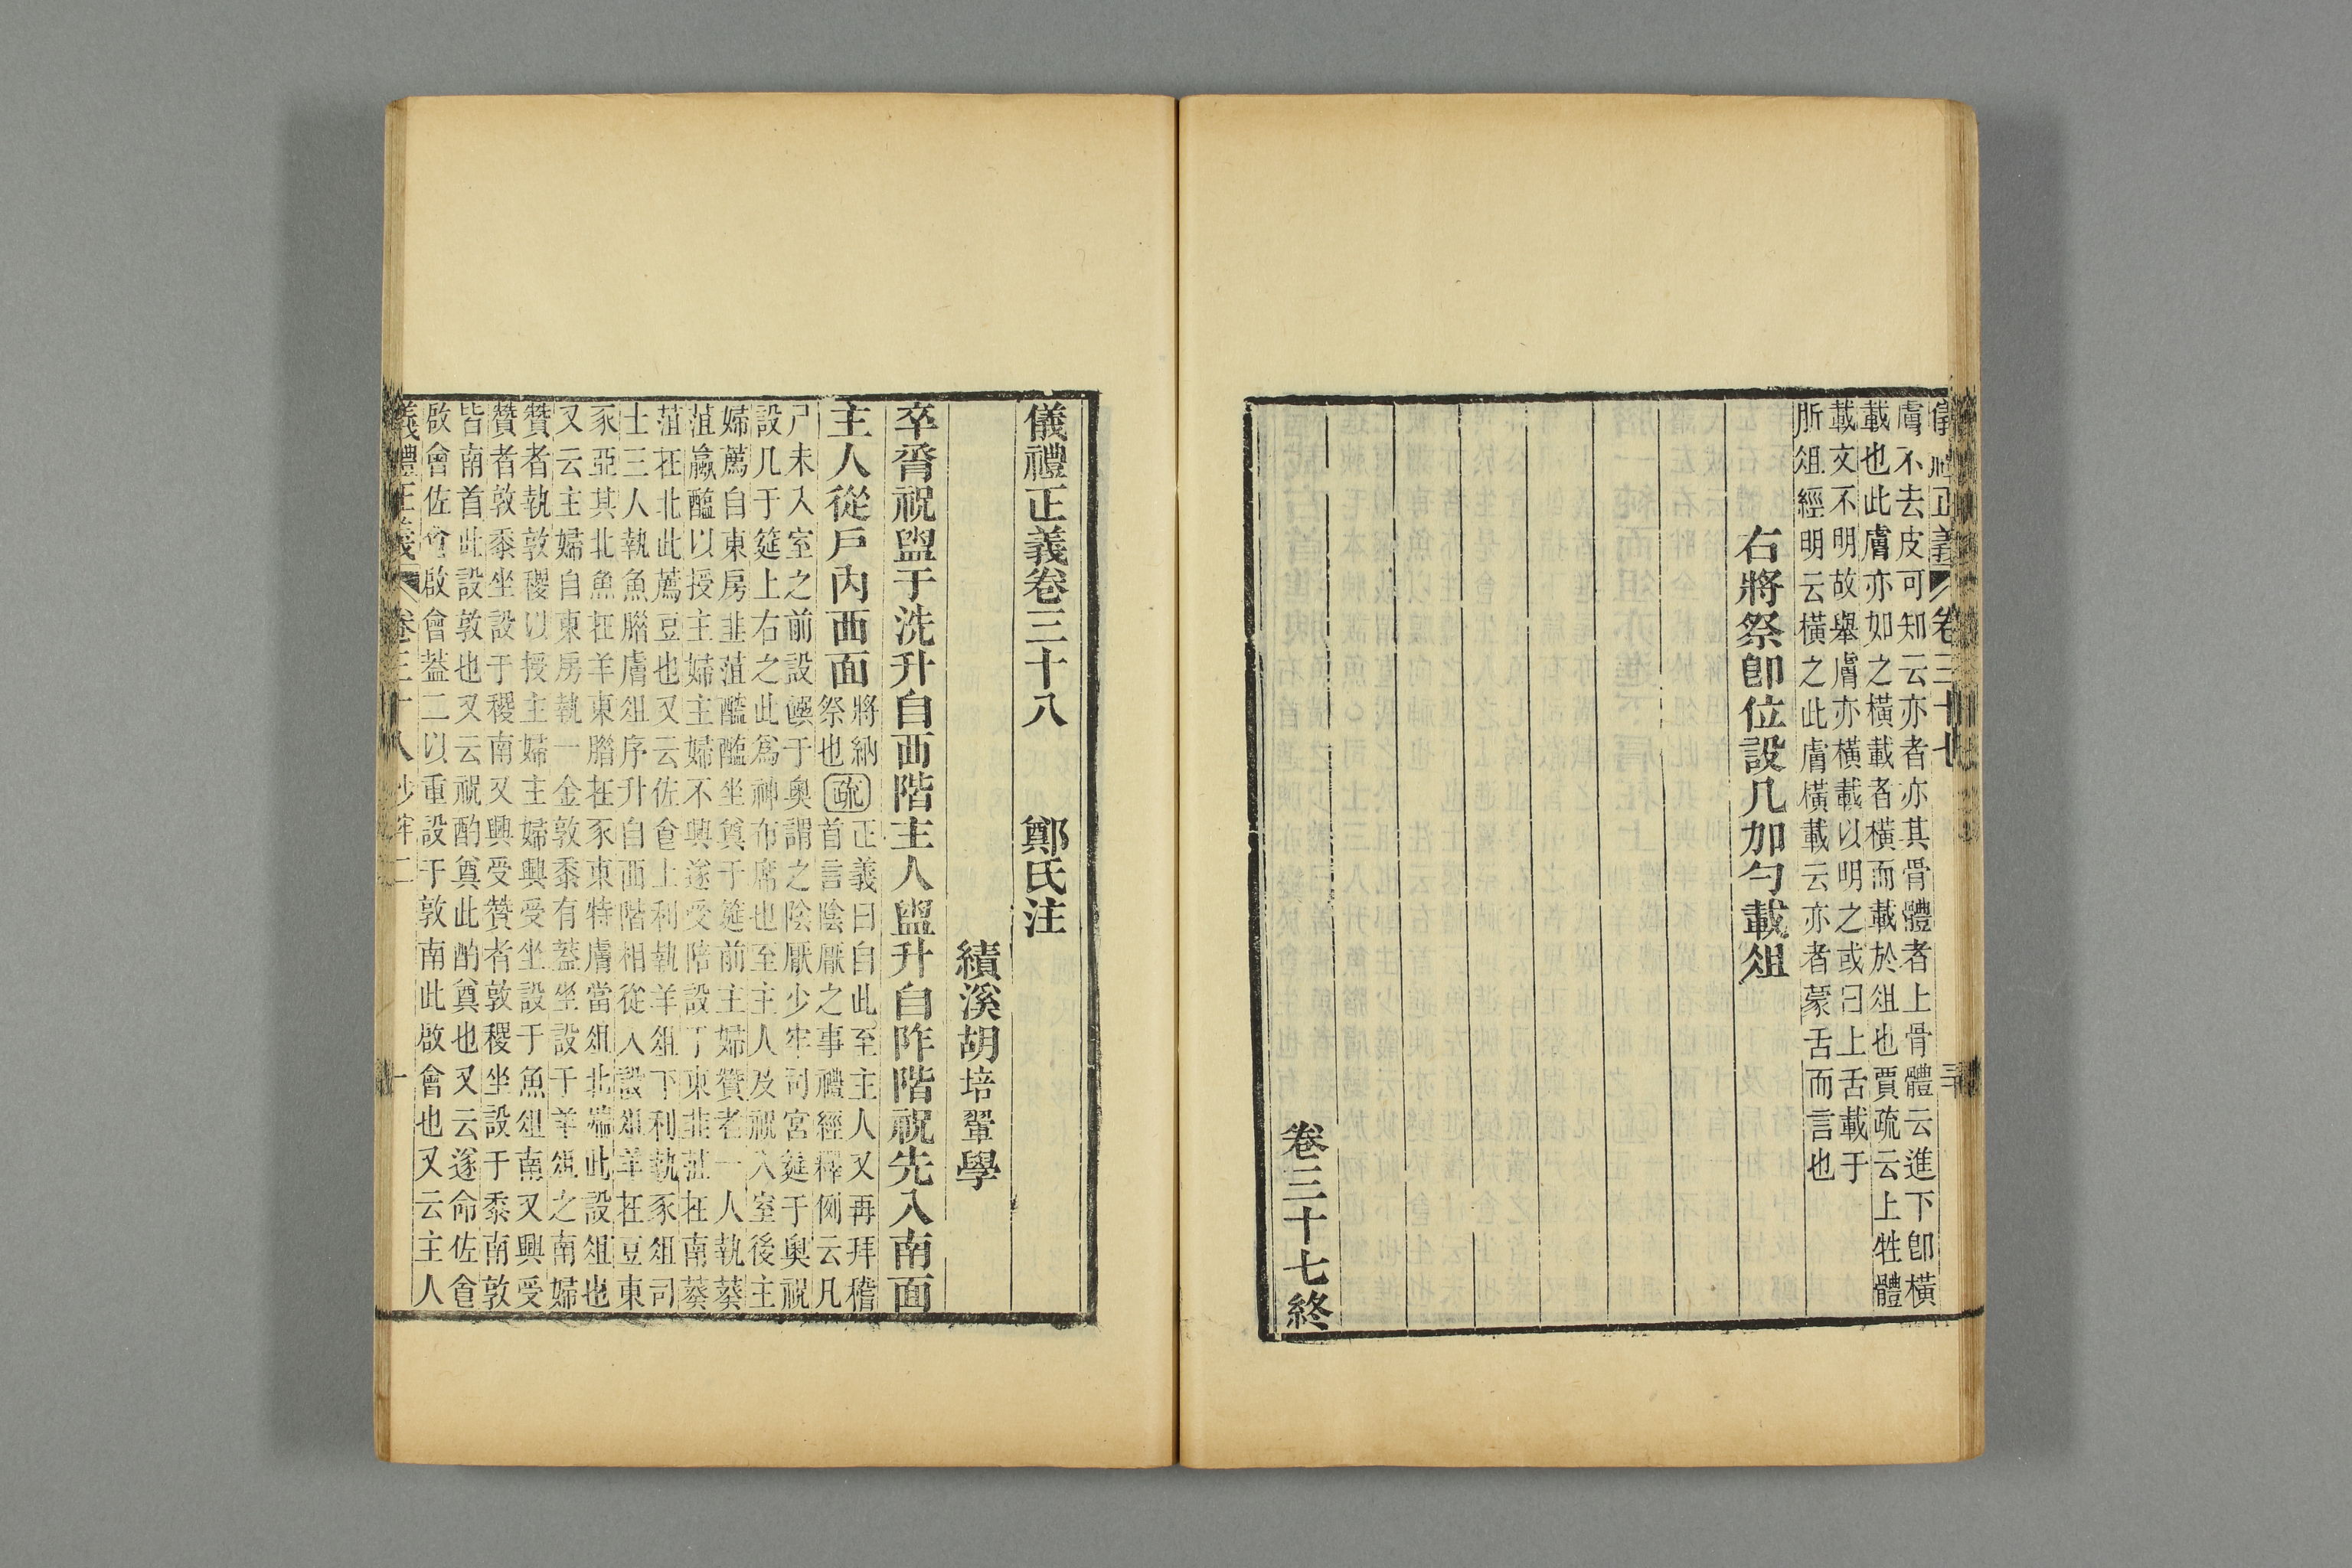 儀禮正義 卷三十七 三十
膚不去皮可知云亦者亦其骨體者上骨體云進下卽橫
載也此膚亦如之橫載者橫而載於俎也賈疏云上牲體
載文不明故舉膚亦橫載以明之或曰上舌載于
肵俎經明云橫之此膚橫載云亦者蒙舌而言也
右將祭卽位設几加勺載俎
卷三十七終
儀禮正義卷三十八 鄭氏注
績溪胡培翬學
卒脀祝盥于洗升自西階主人盥升自阼階祝先入南面
主人從戸內西面將納
祭也疏正義曰自此至主人又再拜稽
首言陰厭之事禮經釋例云凡
尸未入室之前設饌于奧謂之陰厭少牢司宮筵于奧祝
設几于筵上右之此爲神布席也至主人及祝入室後主
婦薦自東房韭菹醓醢坐奠于筵前主婦贊者一人執葵
菹蠃醢以授主婦主婦不興遂受陪設于東韭菹在南葵
菹在北此薦豆也又云佐食上利執羊俎下利執豕俎司
士三人執魚腊膚俎序升自西階相從入設俎羊在豆東
豕亞其北魚在羊東腊在豕東特膚當俎北端此設俎也
又云主婦自東房執一金敦黍有蓋坐設于羊俎之南婦
贊者執敦稷以授主婦主婦興受坐設于魚俎南又興受
贊者敦黍坐設于稷南又興受贊者敦稷坐設于黍南敦
皆南首此設敦也又云祝酌奠此酌奠也又云遂命佐食
啟會佐食啟會蓋二以重設于敦南此啟會也又云主人
義禮正義 卷三十八 少牢二 一